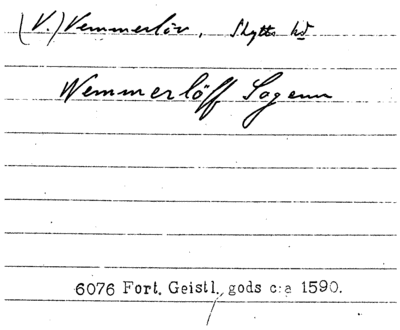 (V.) Vemmerlöv, Skytts hd
Wemmerlöff Sogenn
6076 Fort. Geistl. gods c:a 1590.